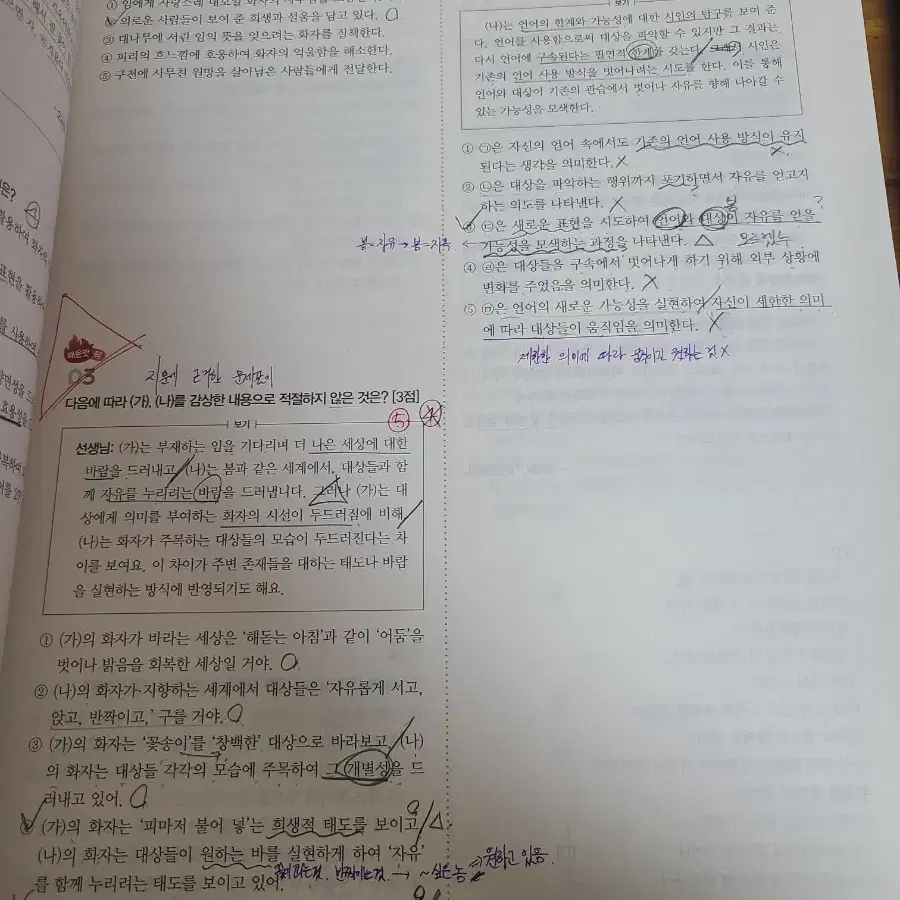 ② 의로운 사람들이 보여 준 희생과 설움을 담고 있다. ○
③ 대나무에 서린 임의 뜻을 잊으려는 화자를 질책한다.
④ 피리의 흐느낌에 호응하여 화자의 억울함을 해소한다.
⑤ 구천에 사무친 원망을 살아남은 사람들에게 전달한다.
매운맛
03
지문에 근거한 문제풀이
다음에 따라 (가), (나)를 감상한 내용으로 적절하지 않은 것은? [3점]
⑤ ④
보기
선생님: (가)는 부재하는 임을 기다리며 더 나은 세상에 대한
바람을 드러내고, (나)는 봄과 같은 세계에서, 대상들과 함
께 자유를 누리려는 바람을 드러냅니다. 그러나 (가)는 대
상에게 의미를 부여하는 화자의 시선이 두드러짐에 비해,
(나)는 화자가 주목하는 대상들의 모습이 두드러진다는 차
이를 보여요. 이 차이가 주변 존재들을 대하는 태도나 바람
을 실현하는 방식에 반영되기도 해요.
① (가)의 화자가 바라는 세상은 ‘해돋는 아침’과 같이 ‘어둠’을
벗어나 밝음을 회복한 세상일 거야. ○
② (나)의 화자가 지향하는 세계에서 대상들은 ‘자유롭게 서고,
앉고, 반짝이고,’ 구를 거야. ○
③ (가)의 화자는 ‘꽃송이’를 ‘창백한’ 대상으로 바라보고, (나)
의 화자는 대상들 각각의 모습에 주목하여 그 개별성을 드
러내고 있어. ○
④ (가)의 화자는 ‘피마저 불어 넣’는 희생적 태도를 보이고, △
(나)의 화자는 대상들이 원하는 바를 실현하게 하여 ‘자유’
를 함께 누리려는 태도를 보이고 있어.
반짝이는것 → ~싶은 놈 → 원하고 있음.
보기
(나)는 언어의 한계와 가능성에 대한 시인의 탐구를 보여 준
다. 언어를 사용함으로써 대상을 파악할 수 있지만 그 결과는
다시 언어에 구속된다는 필연적 한계를 갖는다. 그래서 시인은
기존의 언어 사용 방식을 벗어나려는 시도를 한다. 이를 통해
언어와 대상이 기존의 관습에서 벗어나 자유를 향해 나아갈 수
있는 가능성을 모색한다.
① ㉠은 자신의 언어 속에서도 기존의 언어 사용 방식이 유지
된다는 생각을 의미한다. X X
② ㉡은 대상을 파악하는 행위까지 포기하면서 자유를 얻고자
하는 의도를 나타낸다. X
봄 ?
③ ㉢은 새로운 표현을 시도하여 언어와 대상이 자유를 얻을
봄=자유 → 봄=지옥 ← 가능성을 모색하는 과정을 나타낸다. △
④ ㉣은 대상들을 구속에서 벗어나게 하기 위해 외부 상황에
변화를 주었음을 의미한다. X
⑤ ㉤은 언어의 새로운 가능성을 실현하여 자신이 제한한 의미
에 따라 대상들이 움직임을 의미한다. X
제한한 의미에 따라 움직이고 원하는 것 X